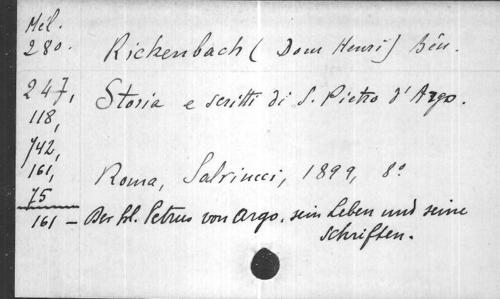 Mél.
280.
Rickenbach (Dom Henri) Bén.
247,
Storia e scritti di S. Pietro d'Argo.
118,
742,
161,
Roma, Salviucci, 1899, 8°
75
161 — Der hl. Petrus von Argo. sein Leben und seine
Schriften.